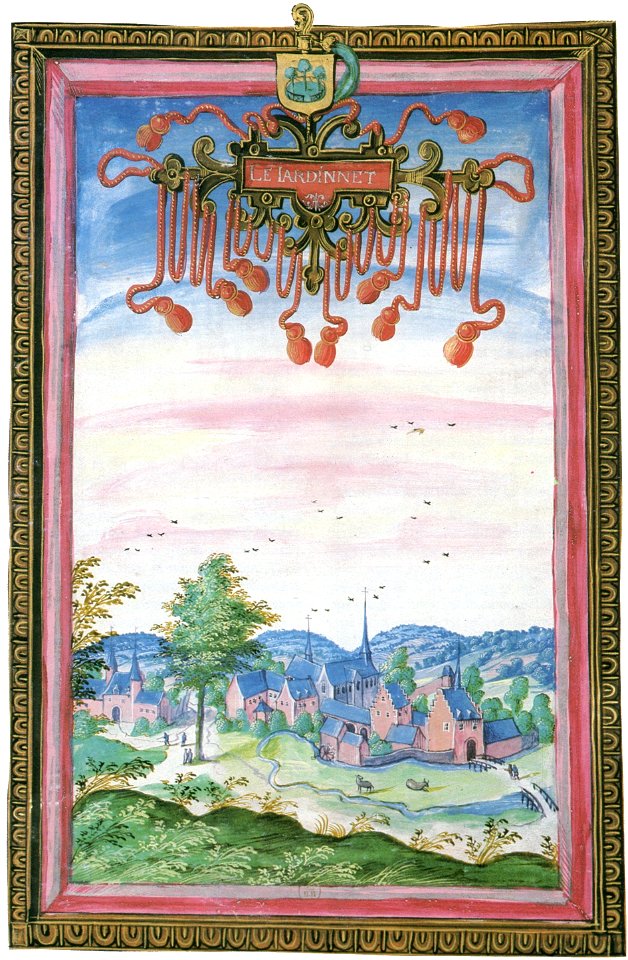 LE IARDINNET